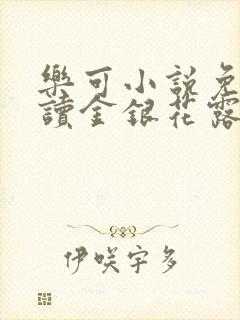 樂可小説免
讀金銀花露
伊咲宇多